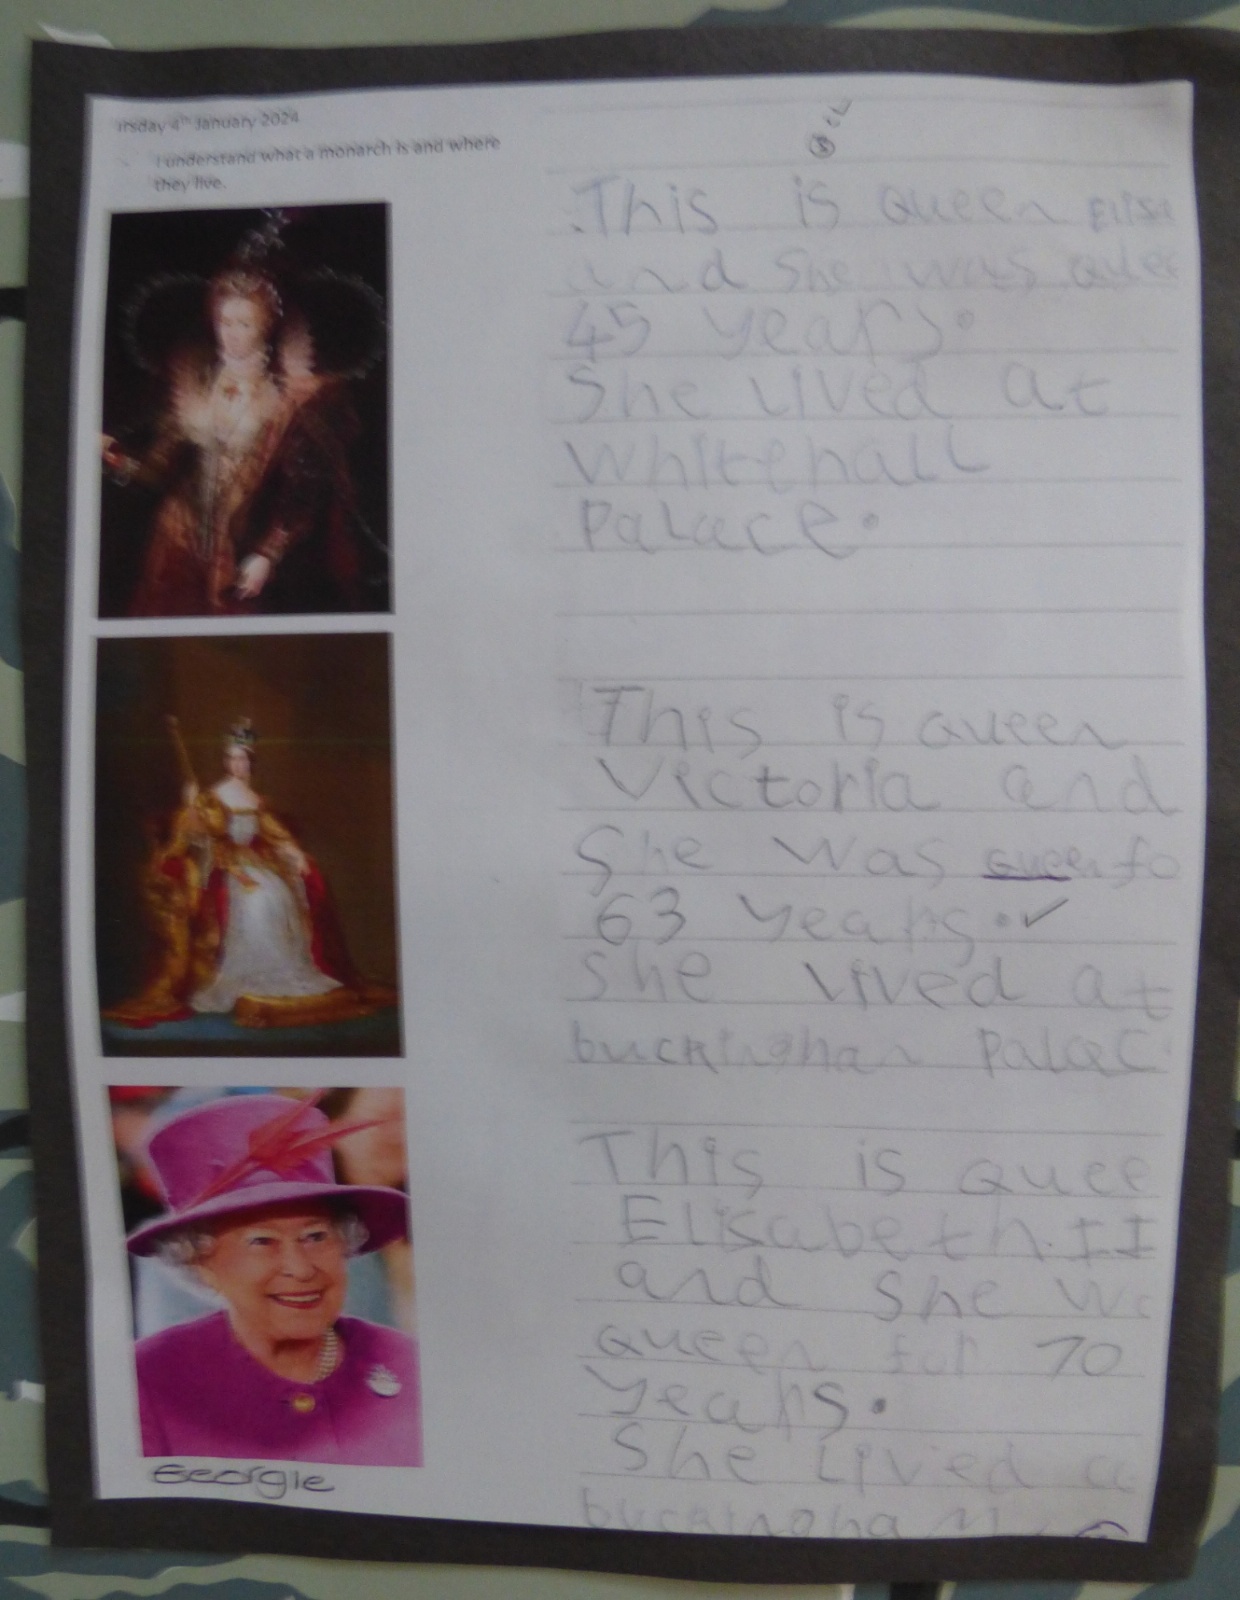 rsday 4th January 2024
I understand what a monarch is and where
they live.
This is queen
and she was quee
45 years.
She lived at
Whitehall
Palace.
This is queen
Victoria and
She was queen fo
63 years.
She lived at
buckinghan Palac
This is quee
Elisabeth II
and She
queen for 70
Years.
She lived
buckingham
Georgie